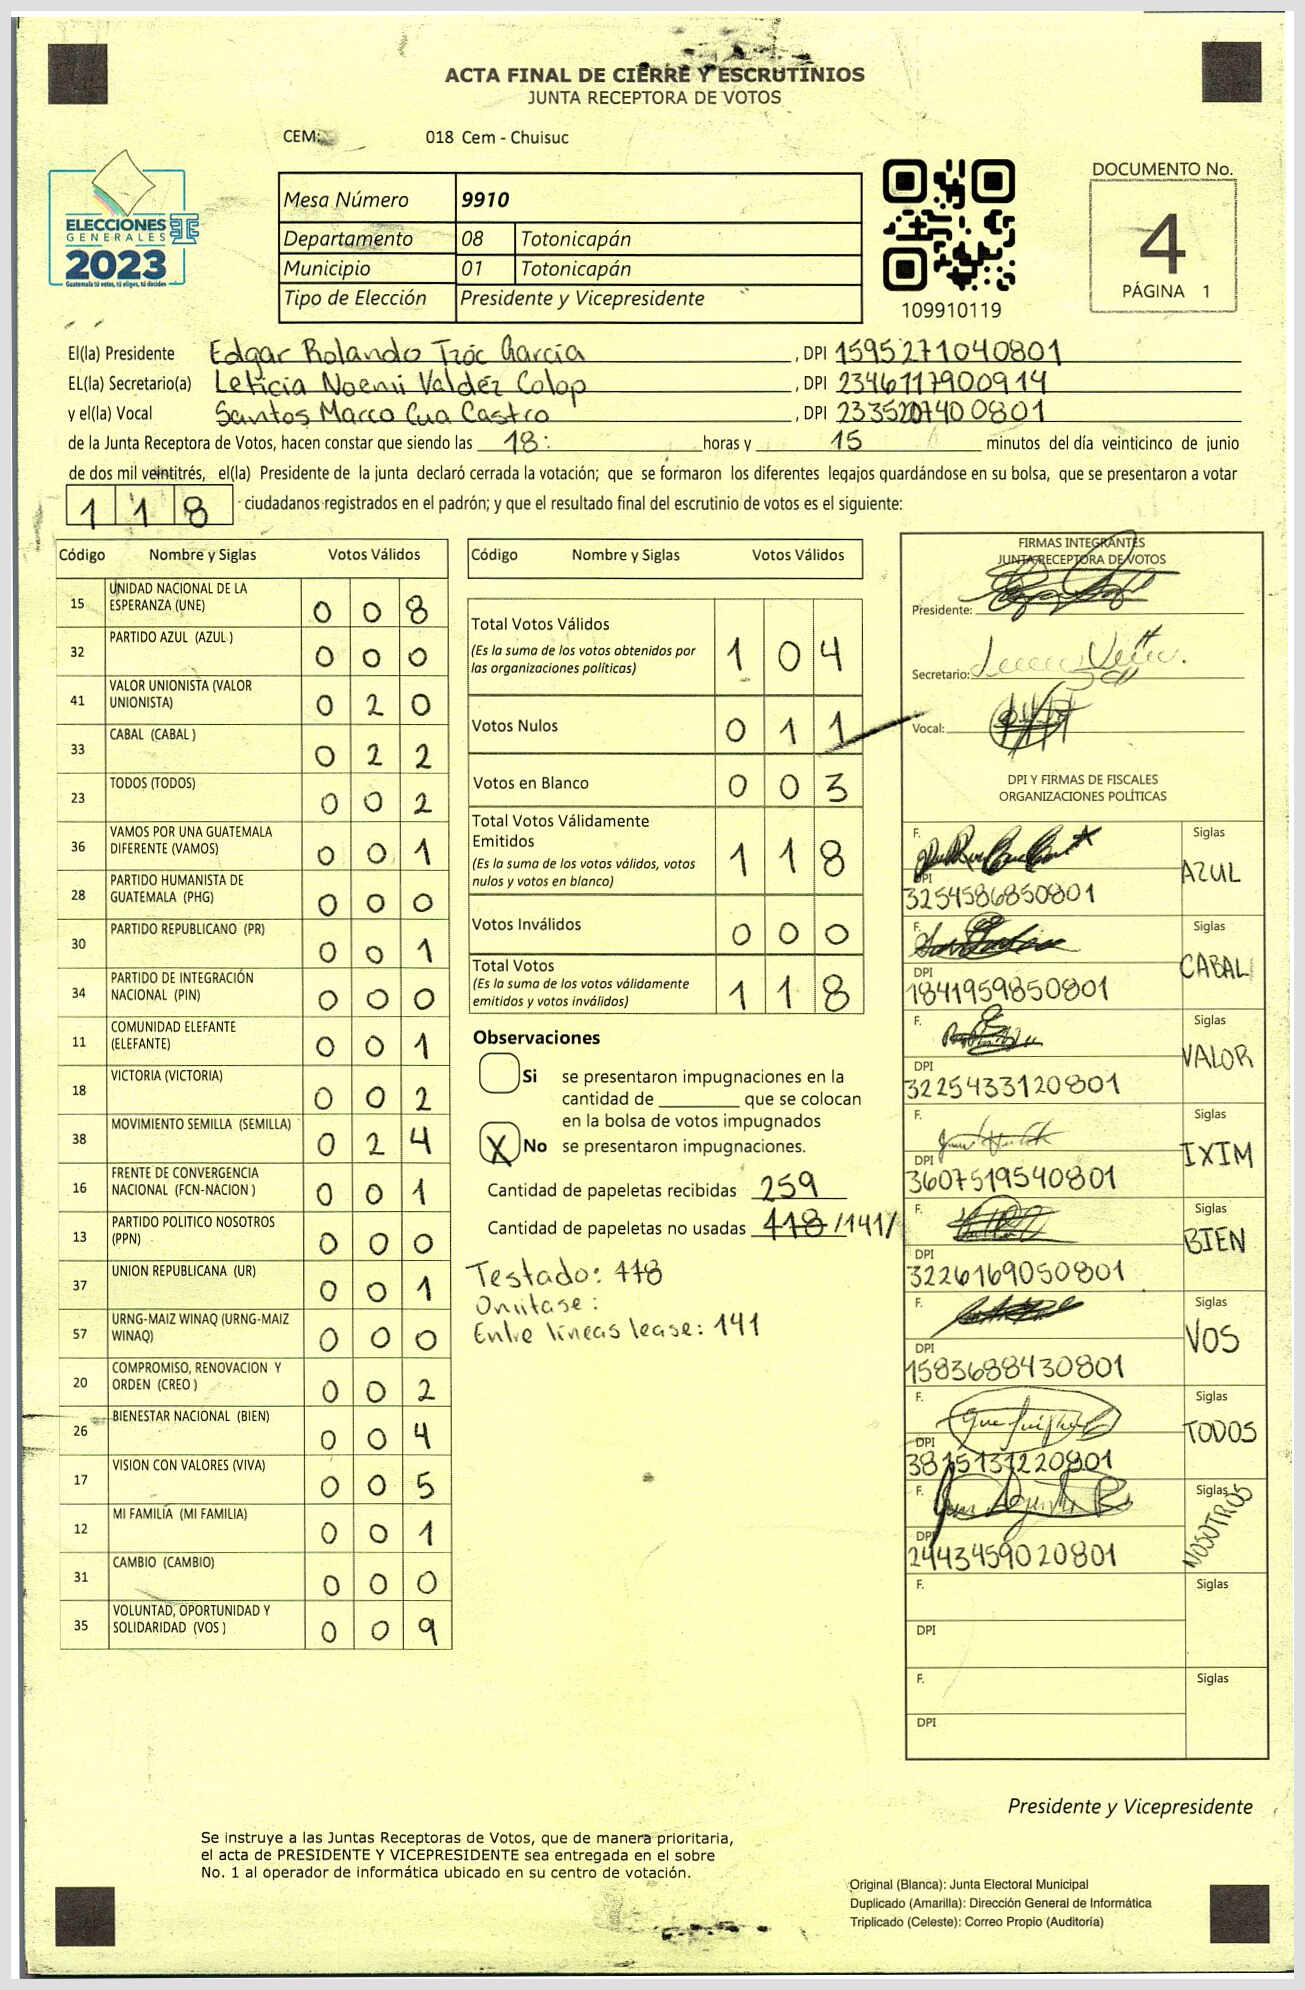 ACTA FINAL DE CIERRE Y ESCRUTINIOS
JUNTA RECEPTORA DE VOTOS
CEM: 018 Cem - Chuisuc
ELECCIONES
GENERALES
2023
Guatemala tú votes, tú eliges, tú decides
Mesa Número 9910
Departamento 08 Totonicapán
Municipio 01 Totonicapán
Tipo de Elección Presidente y Vicepresidente
109910119
DOCUMENTO No.
4
PÁGINA 1
El(la) Presidente Edgar Rolando Tzóc García, DPI 1595271040801
EL(la) Secretario(a) Leticia Noemi Valdéz Colop, DPI 2346117900914
y el(la) Vocal Santos Marco Cua Castro, DPI 2335207400801
de la Junta Receptora de Votos, hacen constar que siendo las 18: horas y 15 minutos del día veinticinco de junio
de dos mil veintitrés, el(la) Presidente de la junta declaró cerrada la votación; que se formaron los diferentes legajos quardándose en su bolsa, que se presentaron a votar
118 ciudadanos registrados en el padrón; y que el resultado final del escrutinio de votos es el siguiente:
Código Nombre y Siglas Votos Válidos
15 UNIDAD NACIONAL DE LA ESPERANZA (UNE) 0 0 8
32 PARTIDO AZUL (AZUL ) 0 0 0
41 VALOR UNIONISTA (VALOR UNIONISTA) 0 2 0
33 CABAL (CABAL ) 0 2 2
23 TODOS (TODOS) 0 0 2
36 VAMOS POR UNA GUATEMALA DIFERENTE (VAMOS) 0 0 1
28 PARTIDO HUMANISTA DE GUATEMALA (PHG) 0 0 0
30 PARTIDO REPUBLICANO (PR) 0 0 1
34 PARTIDO DE INTEGRACIÓN NACIONAL (PIN) 0 0 0
11 COMUNIDAD ELEFANTE (ELEFANTE) 0 0 1
18 VICTORIA (VICTORIA) 0 0 2
38 MOVIMIENTO SEMILLA (SEMILLA) 0 2 4
16 FRENTE DE CONVERGENCIA NACIONAL (FCN-NACION ) 0 0 1
13 PARTIDO POLITICO NOSOTROS (PPN) 0 0 0
37 UNION REPUBLICANA (UR) 0 0 1
57 URNG-MAIZ WINAQ (URNG-MAIZ WINAQ) 0 0 0
20 COMPROMISO, RENOVACION Y ORDEN (CREO ) 0 0 2
26 BIENESTAR NACIONAL (BIEN) 0 0 4
17 VISION CON VALORES (VIVA) 0 0 5
12 MI FAMILIA (MI FAMILIA) 0 0 1
31 CAMBIO (CAMBIO) 0 0 0
35 VOLUNTAD, OPORTUNIDAD Y SOLIDARIDAD (VOS ) 0 0 9
Código Nombre y Siglas Votos Válidos
Total Votos Válidos 1 0 4
(Es la suma de los votos obtenidos por
las organizaciones políticas)
Votos Nulos 0 1 1
Votos en Blanco 0 0 3
Total Votos Válidamente
Emitidos 1 1 8
(Es la suma de los votos válidos, votos
nulos y votos en blanco)
Votos Inválidos 0 0 0
Total Votos 1 1 8
(Es la suma de los votos válidamente
emitidos y votos inválidos)
Observaciones
Si se presentaron impugnaciones en la
cantidad de ________ que se colocan
en la bolsa de votos impugnados
X No se presentaron impugnaciones.
Cantidad de papeletas recibidas 259
Cantidad de papeletas no usadas 118 /141/
Testado: 118
Omitase:
Entre líneas lease: 141
FIRMAS INTEGRANTES
JUNTA RECEPTORA DE VOTOS
Presidente:
Secretario:
Vocal:
DPI Y FIRMAS DE FISCALES
ORGANIZACIONES POLÍTICAS
F. Siglas AZUL
DPI 3254586850801
F. Siglas CABAL
DPI 1841959850801
F. Siglas VALOR
DPI 3225433120801
F. Siglas IXIM
DPI 3607519540801
F. Siglas BIEN
DPI 3226169050801
F. Siglas VOS
DPI 1583688430801
F. Siglas TODOS
DPI 3815131220801
F. Siglas NOSOTROS
DPI 2443459020801
F. Siglas
DPI
F. Siglas
DPI
Presidente y Vicepresidente
Se instruye a las Juntas Receptoras de Votos, que de manera prioritaria,
el acta de PRESIDENTE Y VICEPRESIDENTE sea entregada en el sobre
No. 1 al operador de informática ubicado en su centro de votación.
Original (Blanca): Junta Electoral Municipal
Duplicado (Amarilla): Dirección General de Informática
Triplicado (Celeste): Correo Propio (Auditoría)